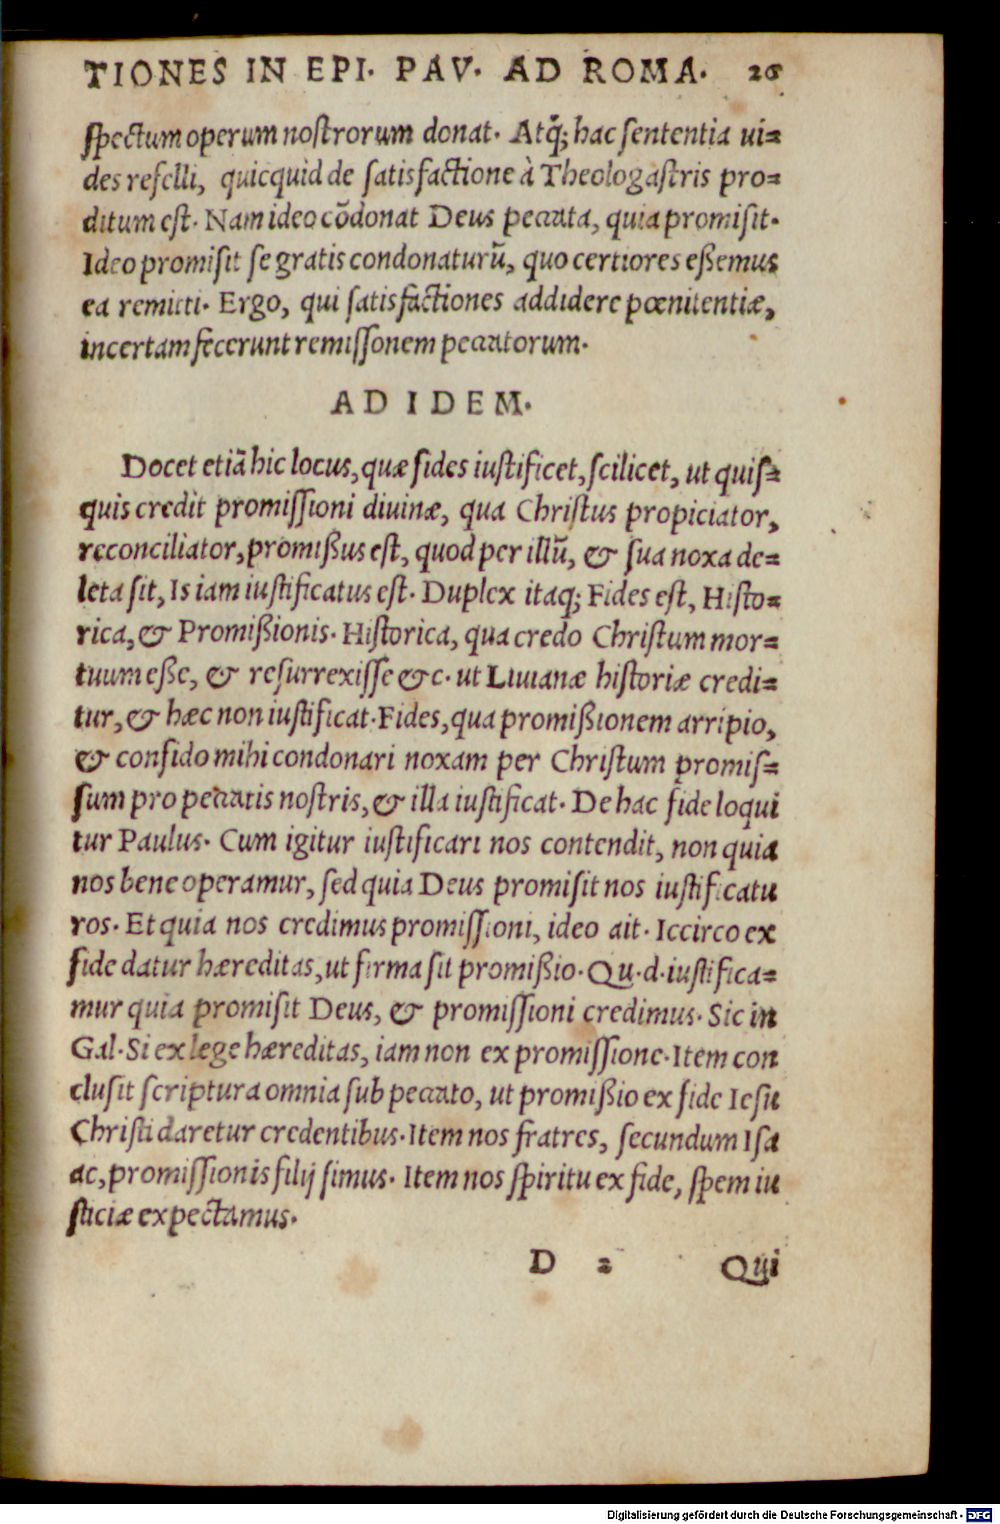 TIONES IN EPI. PAV. AD ROMA. 26
spectum operum nostrorum donat. Atq̃; hac sententia ui=
des refelli, quicquid de satisfactione à Theologastris pro=
ditum est. Nam ideo cõdonat Deus peccata, quia promisit.
Ideo promisit se gratis condonaturũ, quo certiores eßemus
ea remitti. Ergo, qui satisfactiones addidere pœnitentiæ,
incertam fecerunt remissionem peccatorum.
AD IDEM.
Docet etiã hic locus, quæ fides iustificet, scilicet, ut quis=
quis credit promissioni diuinæ, qua Christus propiciator,
reconciliator, promißus est, quod per illũ, & sua noxa de=
leta sit, Is iam iustificatus est. Duplex itaq; Fides est, Histo=
rica, & Promißionis. Historica, qua credo Christum mor=
tuum eße, & resurrexisse &c. ut Liuianæ historiæ credi=
tur, & hæc non iustificat. Fides, qua promißionem arripio,
& confido mihi condonari noxam per Christum promis=
sum pro peccatis nostris, & illa iustificat. De hac fide loqui
tur Paulus. Cum igitur iustificari nos contendit, non quia
nos bene operamur, sed quia Deus promisit nos iustificatu
ros. Et quia nos credimus promissioni, ideo ait. Iccirco ex
fide datur hæreditas, ut firma sit promißio. Qu. d. iustifica=
mur quia promisit Deus, & promissioni credimus. Sic in
Gal. Si ex lege hæreditas, iam non ex promissione. Item con
clusit scriptura omnia sub peccato, ut promißio ex fide Iesu
Christi daretur credentibus. Item nos fratres, secundum Isa
ac, promissionis filij simus. Item nos spiritu ex fide, spem iu
sticiæ expectamus.
D 2 Qui
Digitalisierung gefördert durch die Deutsche Forschungsgemeinschaft - DFG